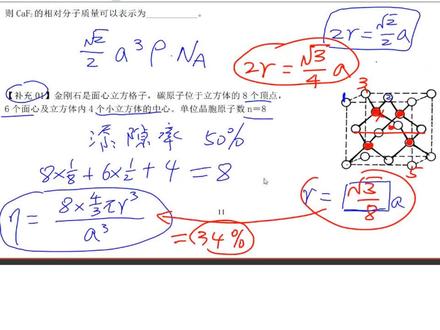 则 CaF₂ 的相对分子质量可以表示为__________。
√2/2 a³ ρ·N_A
2r = √2/2 a
2r = √3/4 a
【补充 01】金刚石是面心立方格子，碳原子位于立方体的 8 个顶点，
6 个面心及立方体内 4 个小立方体的中心。单位晶胞原子数 n＝8
隙率 50%
8×1/8 + 6×1/2 + 4 = 8
η = 8×4/3πr³ / a³
= 34%
r = √3/8 a
11
1
3
5